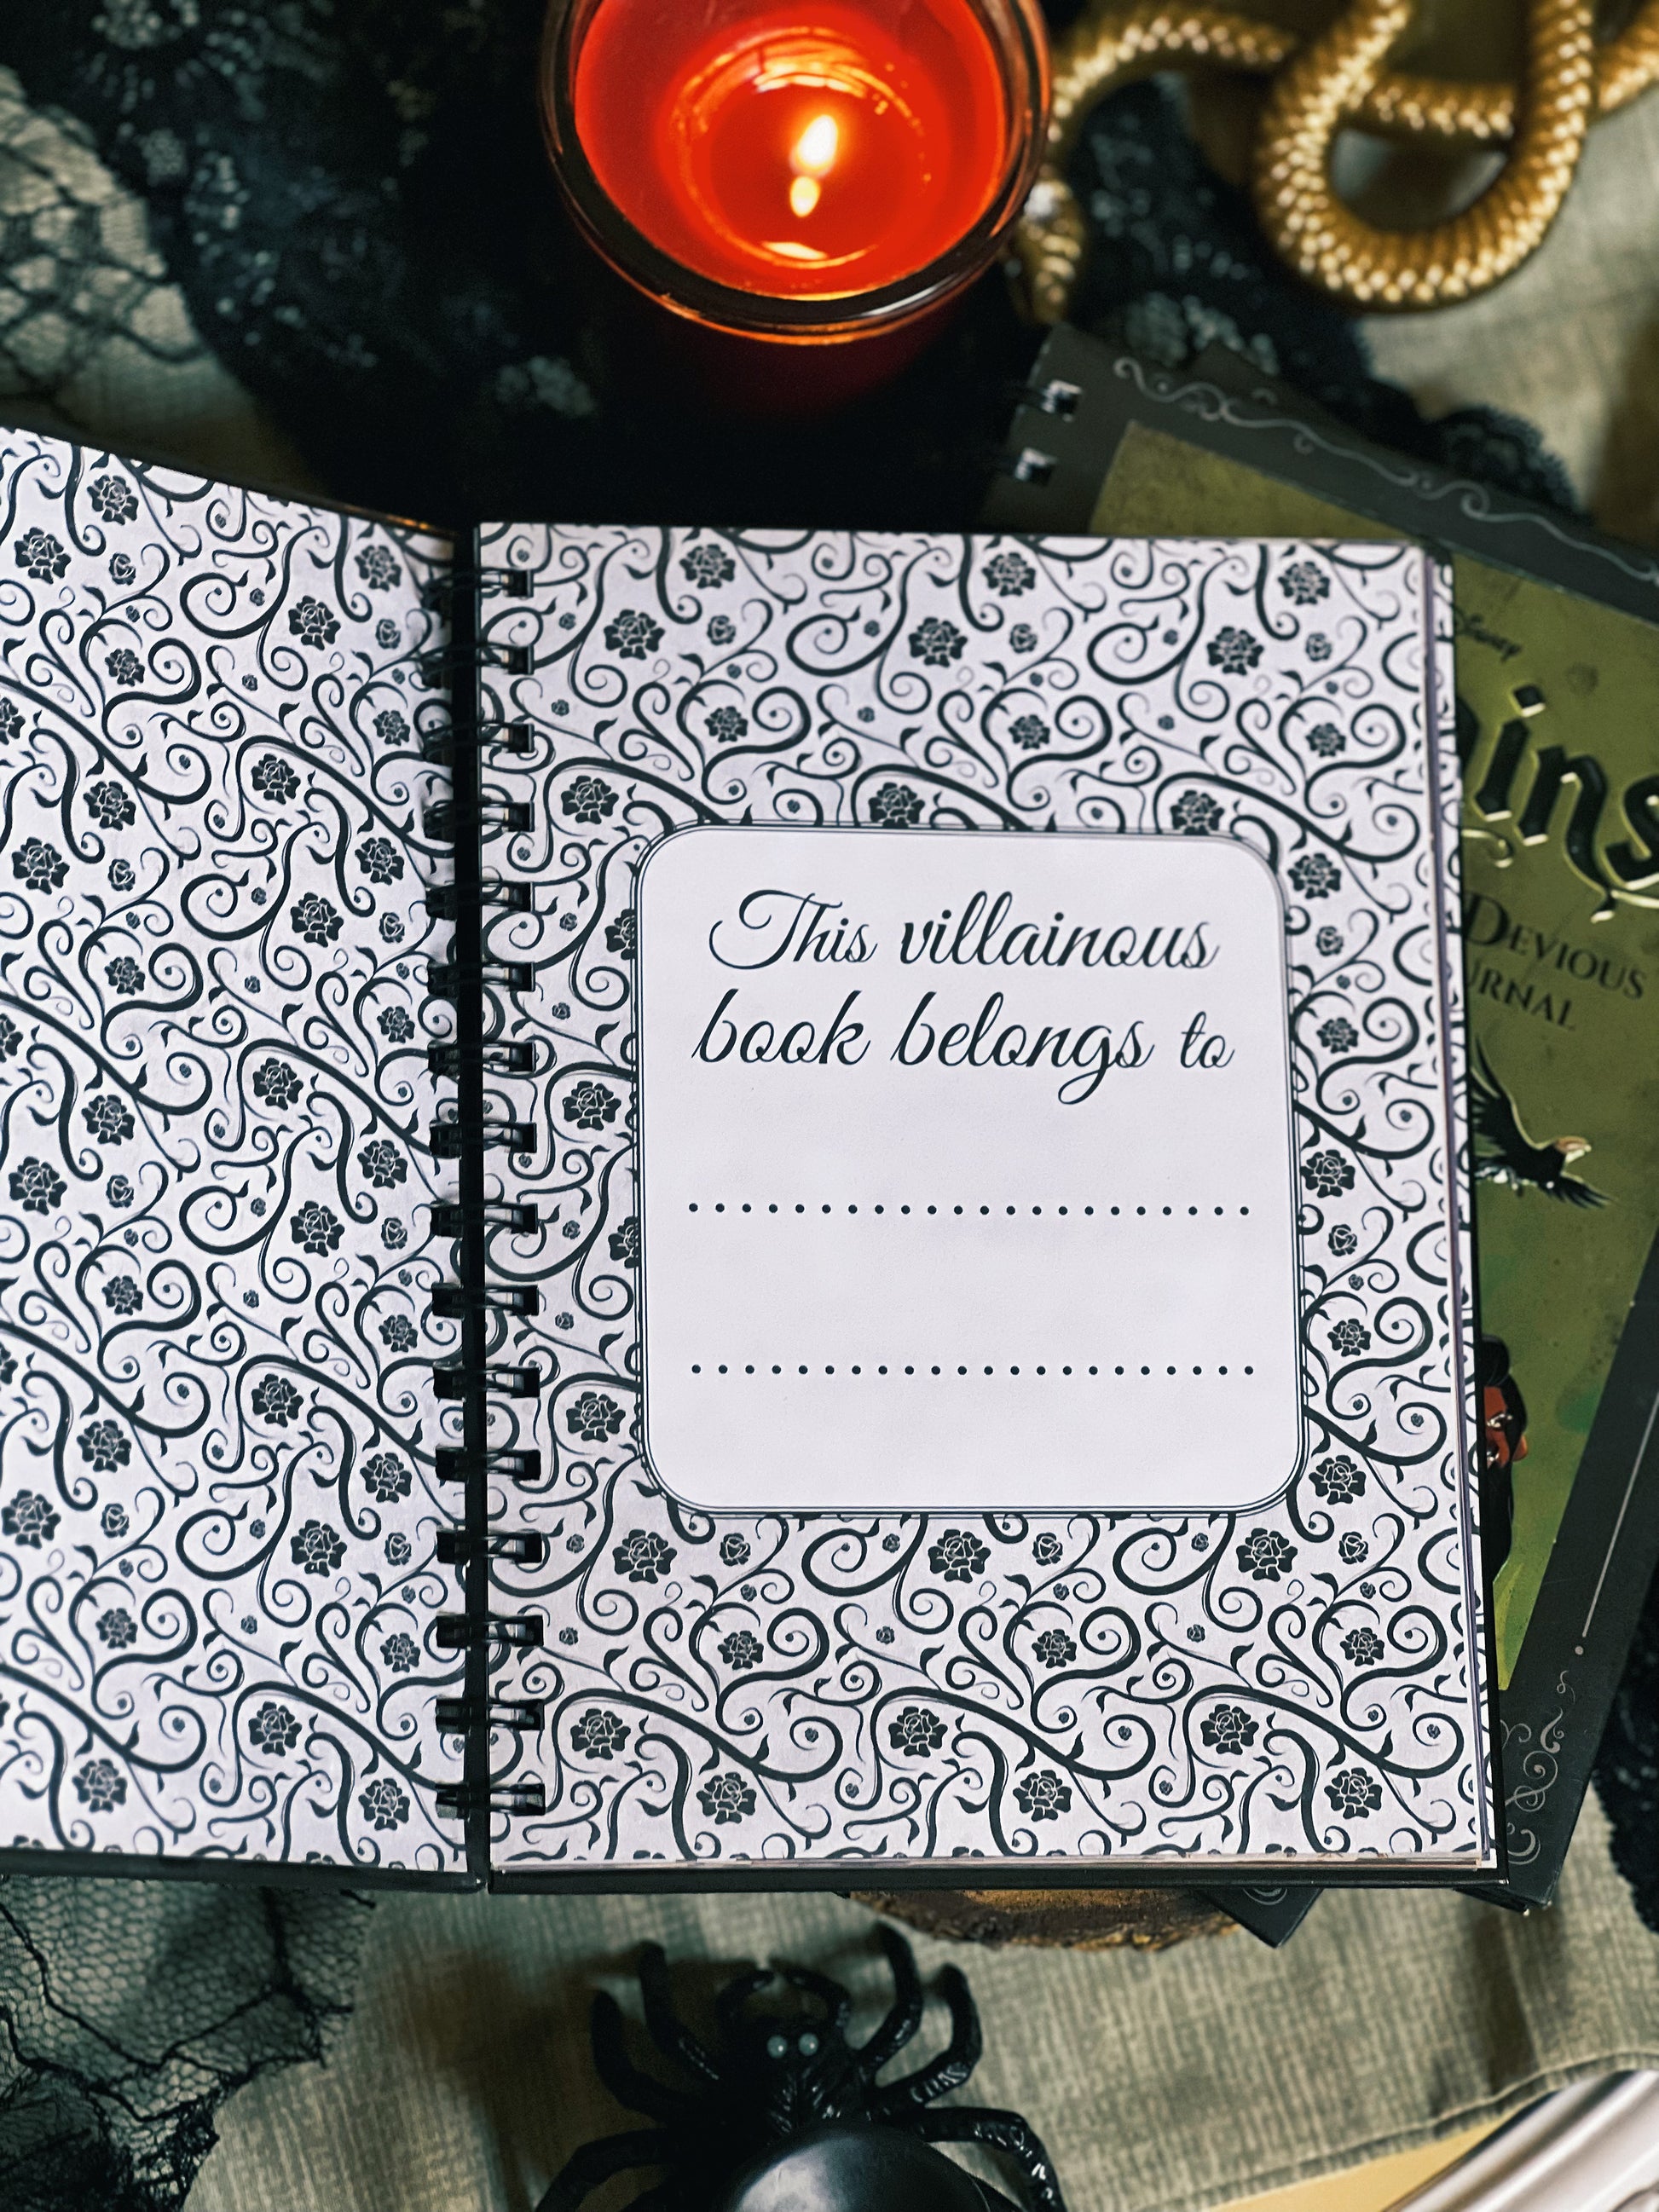 This villainous
book belongs to
Disney
ins
DEVIOUS
URNAL